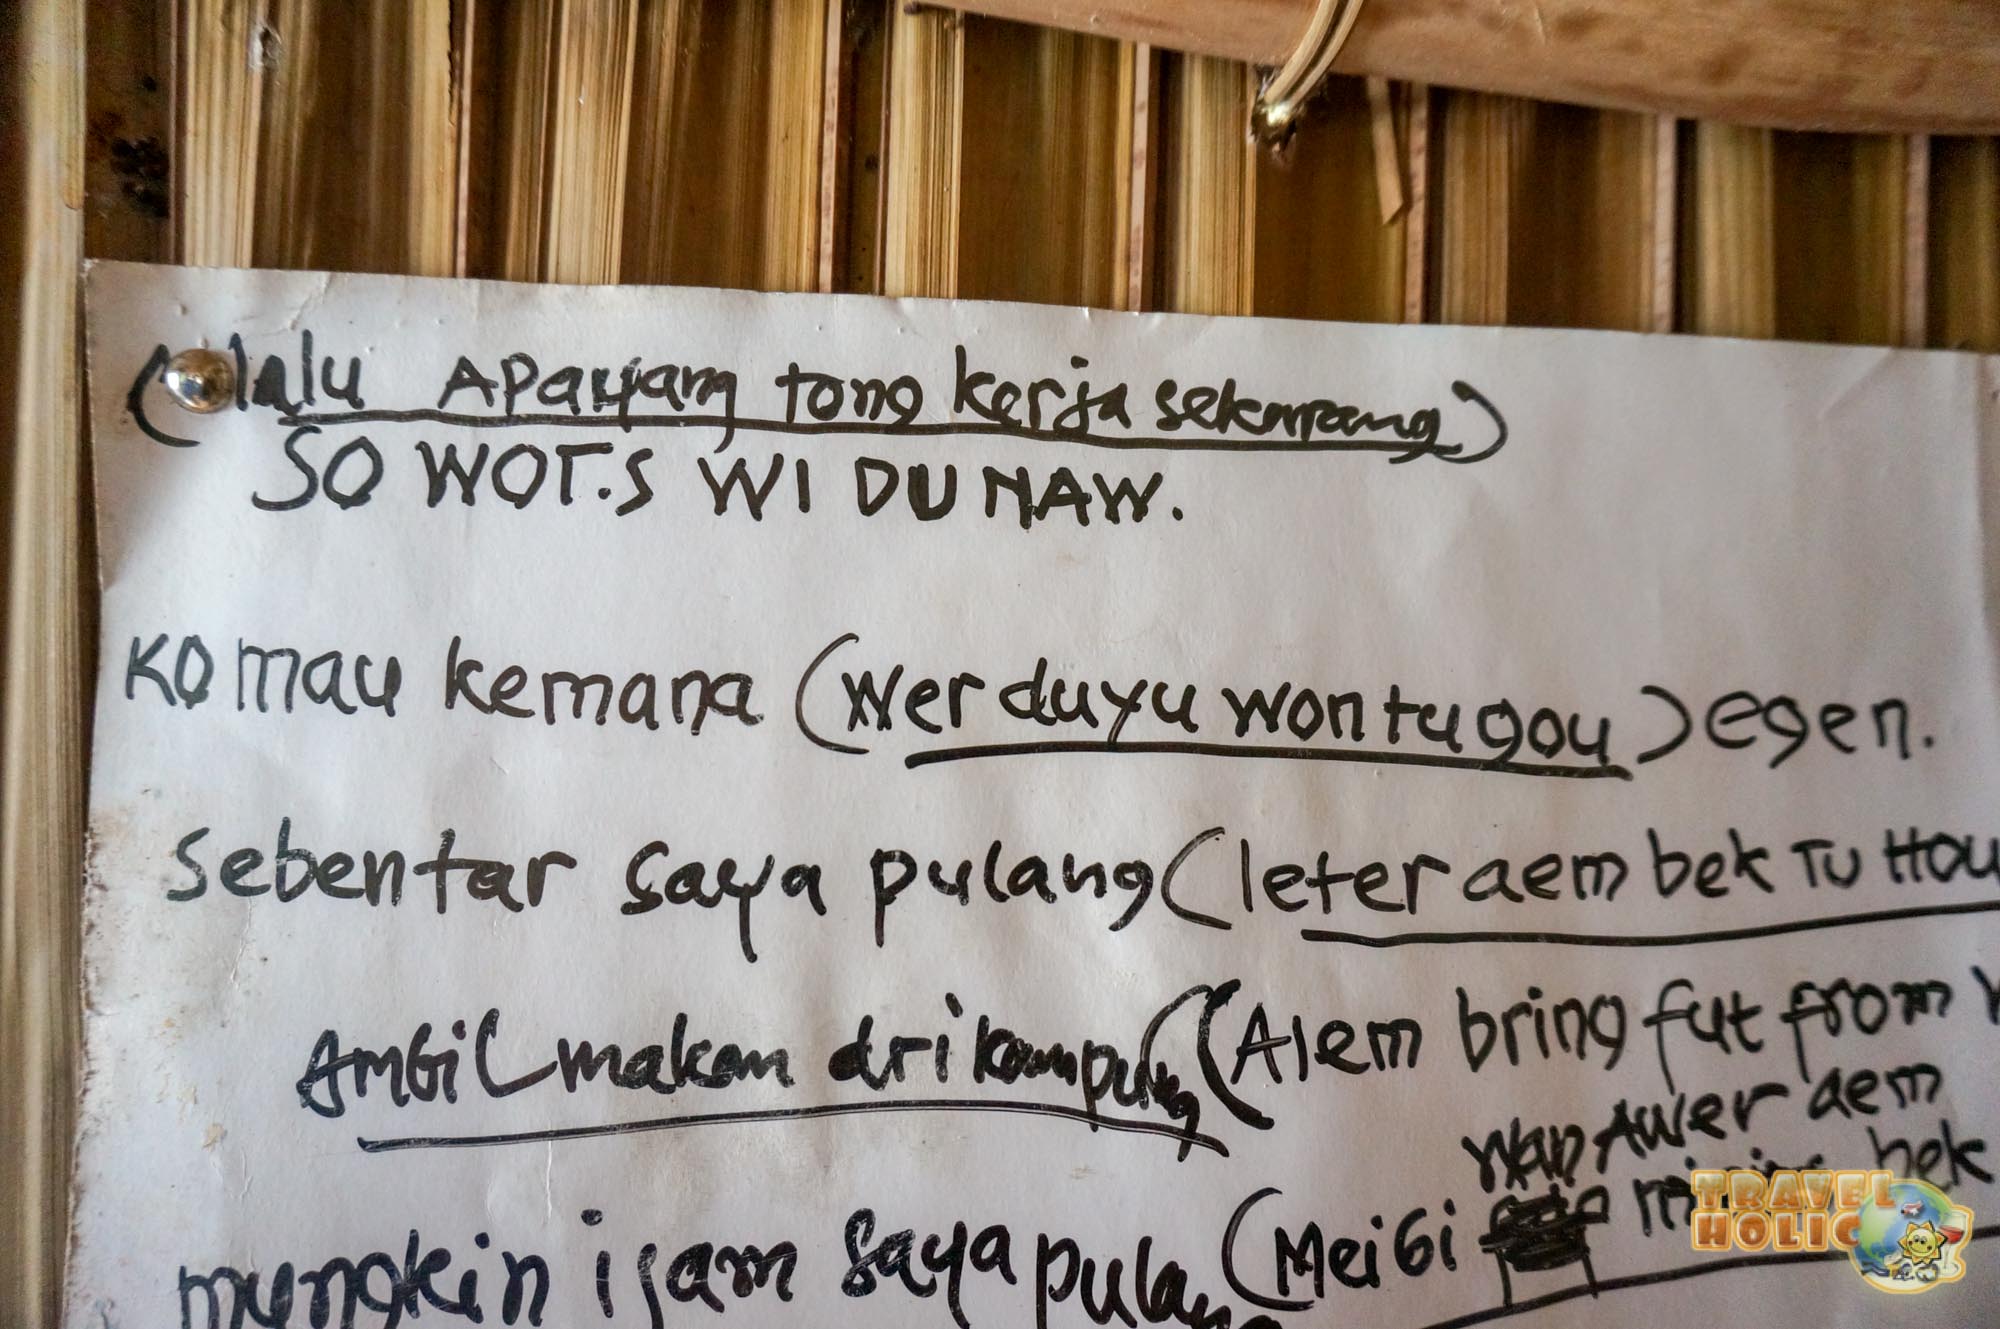 (lalu Apayang tong kerja sekarang)
SO WOT.S WI DU NAW.
KO mau kemana (Wer duyu won tu gou) egen.
Sebentar saya pulang (leter aem bek TU HOU
AMBil makan dri kampung (Alem bring fut from
WAN AWER aem
mungkin 1 jam saya pulang (MeiBi bek
TRAVEL
HOLIC